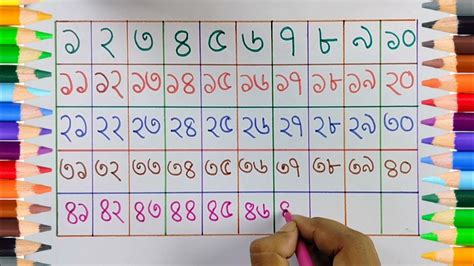 ১ ২ ৩ ৪ ৫ ৬ ৭ ৮ ৯ ১০
১১ ১২ ১৩ ১৪ ১৫ ১৬ ১৭ ১৮ ১৯ ২০
২১ ২২ ২৩ ২৪ ২৫ ২৬ ২৭ ২৮ ২৯ ৩০
৩১ ৩২ ৩৩ ৩৪ ৩৫ ৩৬ ৩৭ ৩৮ ৩৯ ৪০
৪১ ৪২ ৪৩ ৪৪ ৪৫ ৪৬ ৪